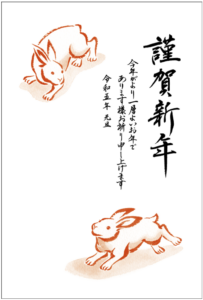 謹賀新年
今年がより一層よいお年で
ありますます様お祈り申し上げます
令和五年 元旦